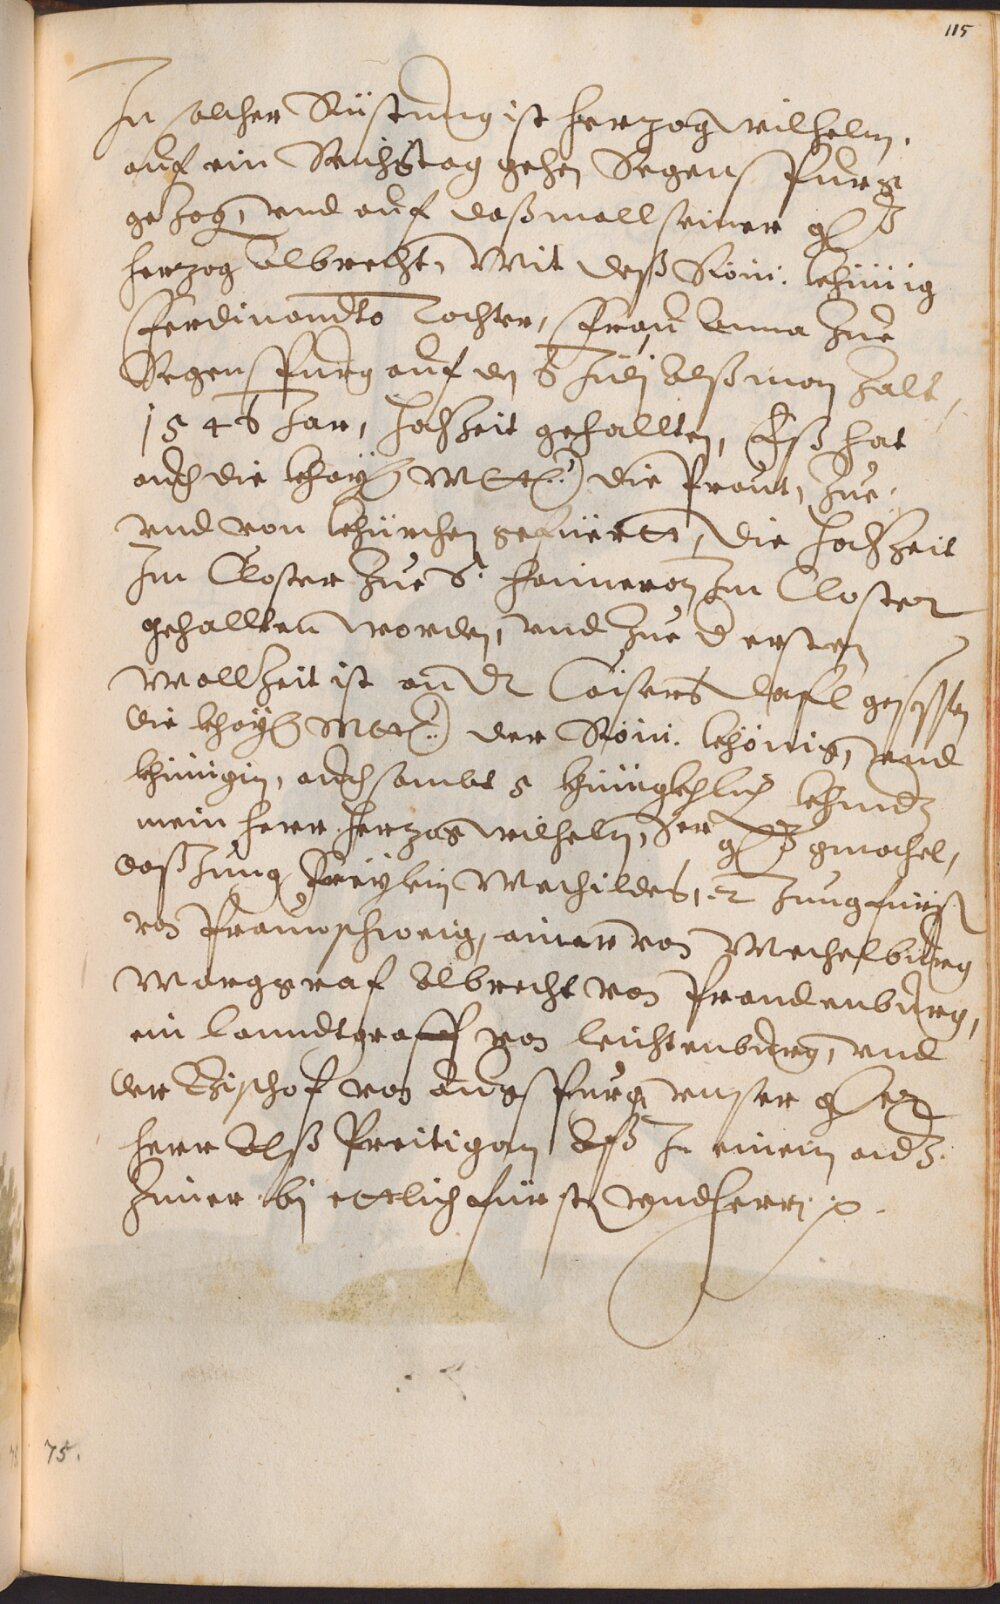 115
In solcher Rüstung ist herzog wilhelm,
auf ein Reichstag gehen Regenspurg
gezog, vnd auf daßmall seiner g
herzog Albrecht, Mit deß Röm: Khinig
Ferdinandto Tochter, Frau Anna zue
Regenspurg auf den 6 Julj Alß man zalt,
1546 Jar, hochzeit gehallten, Eß hat
auch die Khay Mtt: die Praut, zue
vnd von Khürchen gefüertt, die hochzeit
Im Closter zue S: haimeran Im Closter
gehallten worden, vnd zue d ersten
Mallzeit ist an der Caisers dafl gesessen
die Khay Mtt: der Röm: Khönig, vnd
Khinigin, auch sambt 5 Khüngkhlich Khindt
mein herr herzog wilhelm, Ier g gmachel,
daß Jung Freylein Mechildes, Jung fürst
von Praunschweig, ainer von Mechelburg
Margraf Albrecht von Prandenburg,
ein lanndtgraff von leichtenburg, vnd
der Bischof von Augspurg vnser g
herr Alß Preitigan Aß In einem andr
Zimer bj ettlich fürstn vnd herrn
75.